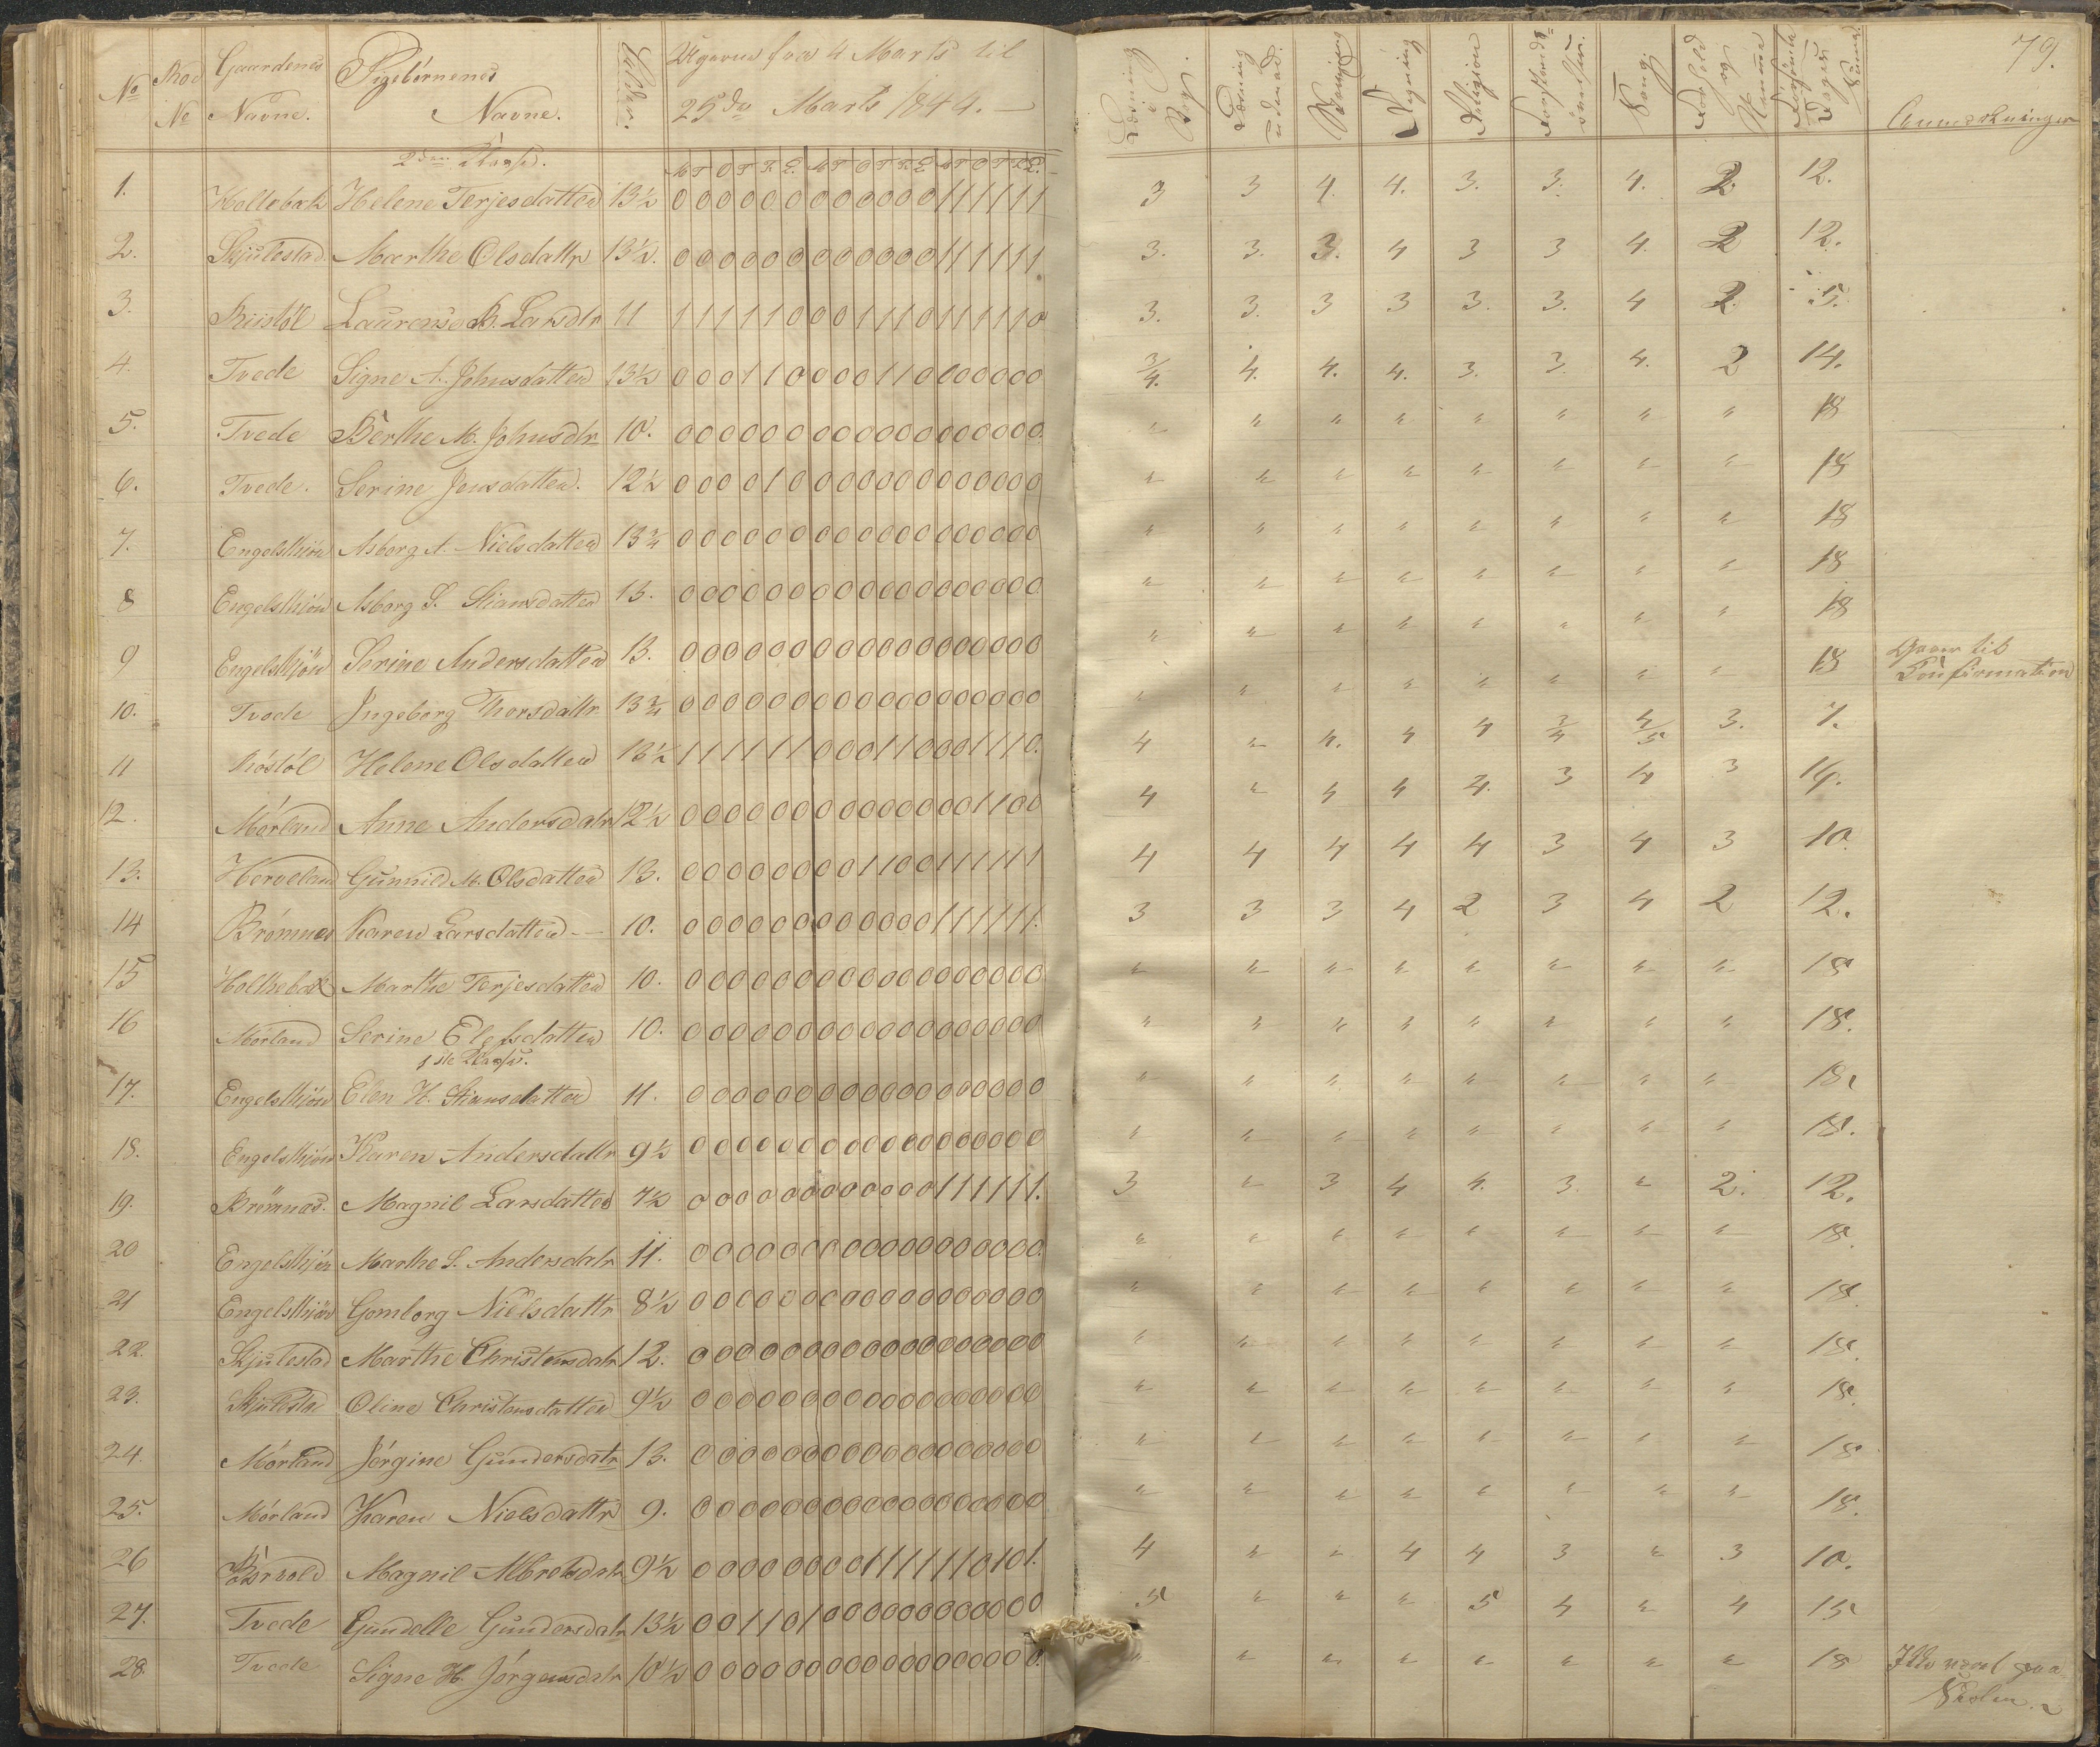 79.
No Rod No Gaardenes Navne. Pigebörnenes Navne. Alder. Ugerne fra 4 Marts til 25de Marts 1844. Læsning i Bog. Læsning udenad. Skrivning Regning Religion Forstandsövelser. Sang. Forhold og Forsömte Dages Summa Anmærkninger
2den Klasse. M T O T F L. M T O T F L M T O T F L.
1. Holtebak Helene Terjesdatter 13½ 0 0 0 0 0 0 0 0 0 0 0 0 1 1 1 1 1 1 3 3 4. 4. 3. 3. 4. 2. 12.
2. Skjulestad Marthe Olsdattr 13½. 0 0 0 0 0 0 0 0 0 0 0 0 1 1 1 1 1 1 3. 3. 3. 4 3 3 4. 2 12.
3. Laurense B. Larsdtr 11 1 1 1 1 1 0 0 0 1 1 1 0 1 1 1 1 1 0 3. 3. 3 3 3. 3. 4 2. 5.
4. Tvede Signe A. Johnsdatter 13½ 0 0 0 1 1 0 0 0 0 1 1 0 0 0 0 0 0 0 3/4. 4. 4. 4. 3. 3. 4. 2 14.
5. Tvede Berthe M. Johnsdtr 10. 0 0 0 0 0 0 0 0 0 0 0 0 0 0 0 0 0 0 " " " " " " " " 18
6. Tvede. Serine Jensdatter. 12½ 0 0 0 0 1 0 0 0 0 0 0 0 0 0 0 0 0 0 " " " " " " " " 18
7. Engelskjön Asborg A. Nielsdatter 13¾ 0 0 0 0 0 0 0 0 0 0 0 0 0 0 0 0 0 0 " " " " " " " " 18
8 Engelskjön Asborg S. Stiansdatter 13. 0 0 0 0 0 0 0 0 0 0 0 0 0 0 0 0 0 0 " " " " " " " " 18
9 Engelskjön Serine Andersdatter 13. 0 0 0 0 0 0 0 0 0 0 0 0 0 0 0 0 0 0 " " " " " " " " 18
10. Tvede Ingeborg Thorsdattr 13¾ 0 0 0 0 0 0 0 0 0 0 0 0 0 0 0 0 0 0 " " " " " " " " 18 Gaaer til
Confirmation
11 Helene Olsdatter 13½ 1 1 1 1 1 1 0 0 0 1 1 0 0 0 1 1 1 0. 4 " 4. 4 4 3/4 4/5 3. 7.
12. Mörland Anne Andersdatr 12½ 0 0 0 0 0 0 0 0 0 0 0 0 0 0 1 1 0 0 4 " 4 4 4. 3 4 3 16.
13. Herveland Gunnild M. Olsdatter 13. 0 0 0 0 0 0 0 0 1 1 0 0 1 1 1 1 1 1 4 4 4 4 4 3 4 3 10
14 Brömnes Karen Larsdatter 10. 0 0 0 0 0 0 0 0 0 0 0 0 1 1 1 1 1 1. 3 3 3 4 2 3 4 2 12.
15 Holtebak Marthe Terjesdatter 10. 0 0 0 0 0 0 0 0 0 0 0 0 0 0 0 0 0 0 " " " " " " " " 18
16 Mörland Serine Elefsdatter 10. 0 0 0 0 0 0 0 0 0 0 0 0 0 0 0 0 0 0 " " " " " " " " 18.
1ste Klasse.
17. Engelskjön Elen H. Stiansdatter 11. 0 0 0 0 0 0 0 0 0 0 0 0 0 0 0 0 0 0 " " " " " " " " 18.
18. Engelskjön Karen Andersdattr 9½ 0 0 0 0 0 0 0 0 0 0 0 0 0 0 0 0 0 0 " " " " " " " " 18.
19. Brömnes. Magnil Larsdatter 7½ 0 0 0 0 0 0 0 0 0 0 0 0 1 1 1 1 1 1. 3 " 3 4 4. 3. " 2. 12.
20 Engelskjön Marthe S. Andersdatr 11. 0 0 0 0 0 0 0 0 0 0 0 0 0 0 0 0 0 0. " " " " " " " " 18.
21 Engelskjön Gomborg Nielsdattr 8½ 0 0 0 0 0 0 0 0 0 0 0 0 0 0 0 0 0 0 " " " " " " " " 18.
22. Skjulestad Marthe Christensdatr 12. 0 0 0 0 0 0 0 0 0 0 0 0 0 0 0 0 0 0 " " " " " " " " 18.
23. Skjulestad Oline Christensdatter 9½ 0 0 0 0 0 0 0 0 0 0 0 0 0 0 0 0 0 0 " " " " " " " " 18.
24. Mörland Jörgine Gundersdatr 13. 0 0 0 0 0 0 0 0 0 0 0 0 0 0 0 0 0 0 " " " " " " " " 18
25. Mörland Karen Nielsdattr 9. 0 0 0 0 0 0 0 0 0 0 0 0 0 0 0 0 0 0 " " " " " " " " 18.
26 Magnil Albretsdatr 9½ 0 0 0 0 0 0 0 0 1 1 1 1 1 1 0 1 0 1. 4 " " 4 4 3 " 3 10.
27. Tvede Gundelle Gundersdatr 13½ 0 0 1 1 0 1 0 0 0 0 0 0 0 0 0 0 0 0 5 " " " 5 4 " 4 15
28. Tvede Signe H. Jörgensdatr 10½ 0 0 0 0 0 0 0 0 0 0 0 0 0 0 0 0 0 0. " " " " " " " " 18 Ikke været paa
Skolen.